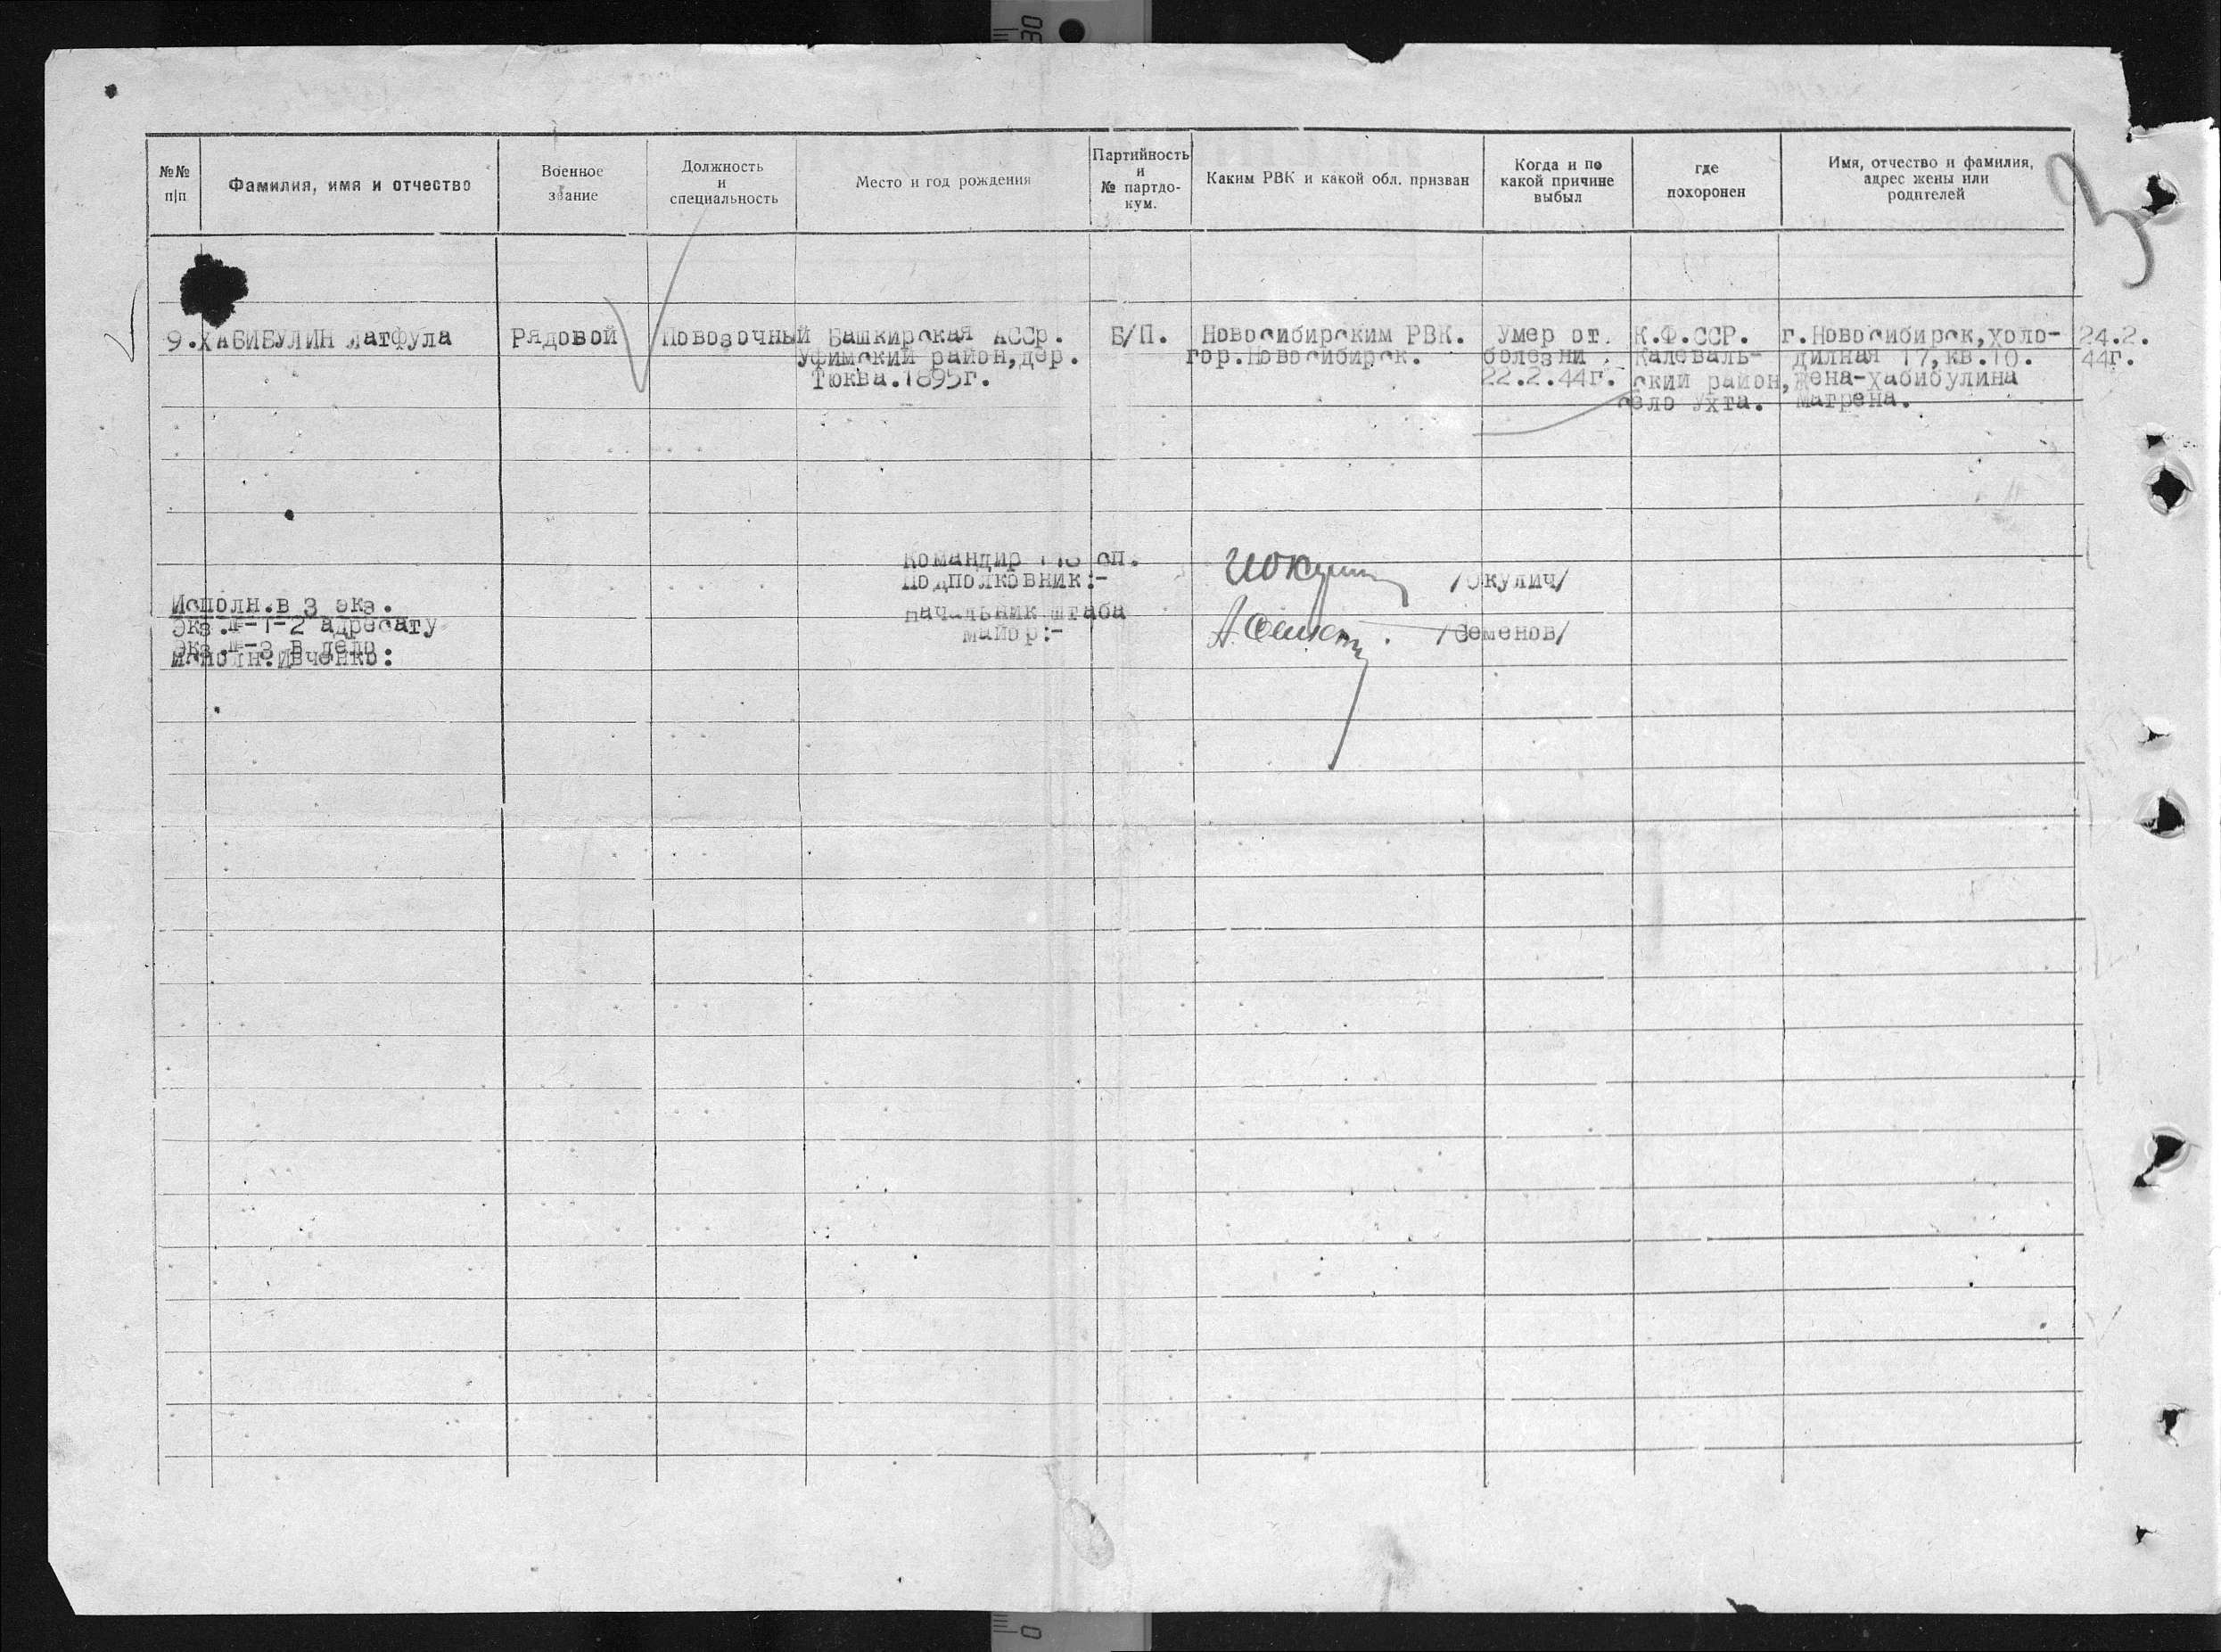 30
№№ п|п
Фамилия, имя и отчество
Военное звание
Должность и специальность
Место и год рождения
Партийность и № партдокум.
Каким РВК и какой обл. призван
Когда и по какой причине выбыл
где похоронен
Имя, отчество и фамилия, адрес жены или родителей
3
9.ХАБИБУЛИН Латфула Рядовой Повозочный Башкирская АССр. Б/П. Новосибирским РВК. Умер от К.Ф.ССР. г.Новосибирск,Холо- 24.2.
Уфимский район,дер. гор.Новосибирск. болезни Калеваль- дилная 17,кв.10. 44г.
Тюква.1895г. 22.2.44г. ский район, Жена-Хабибулина
село Ухта. Матрена.
Командир сп.
Подполковник:- /Окулич/
Начальник штаба
Майор:- /Семенов/
Исполн.в 3 экз.
Экз.№-1-2 адресату
Экз.№-3 в дело
Исполн.Ивченко:
0